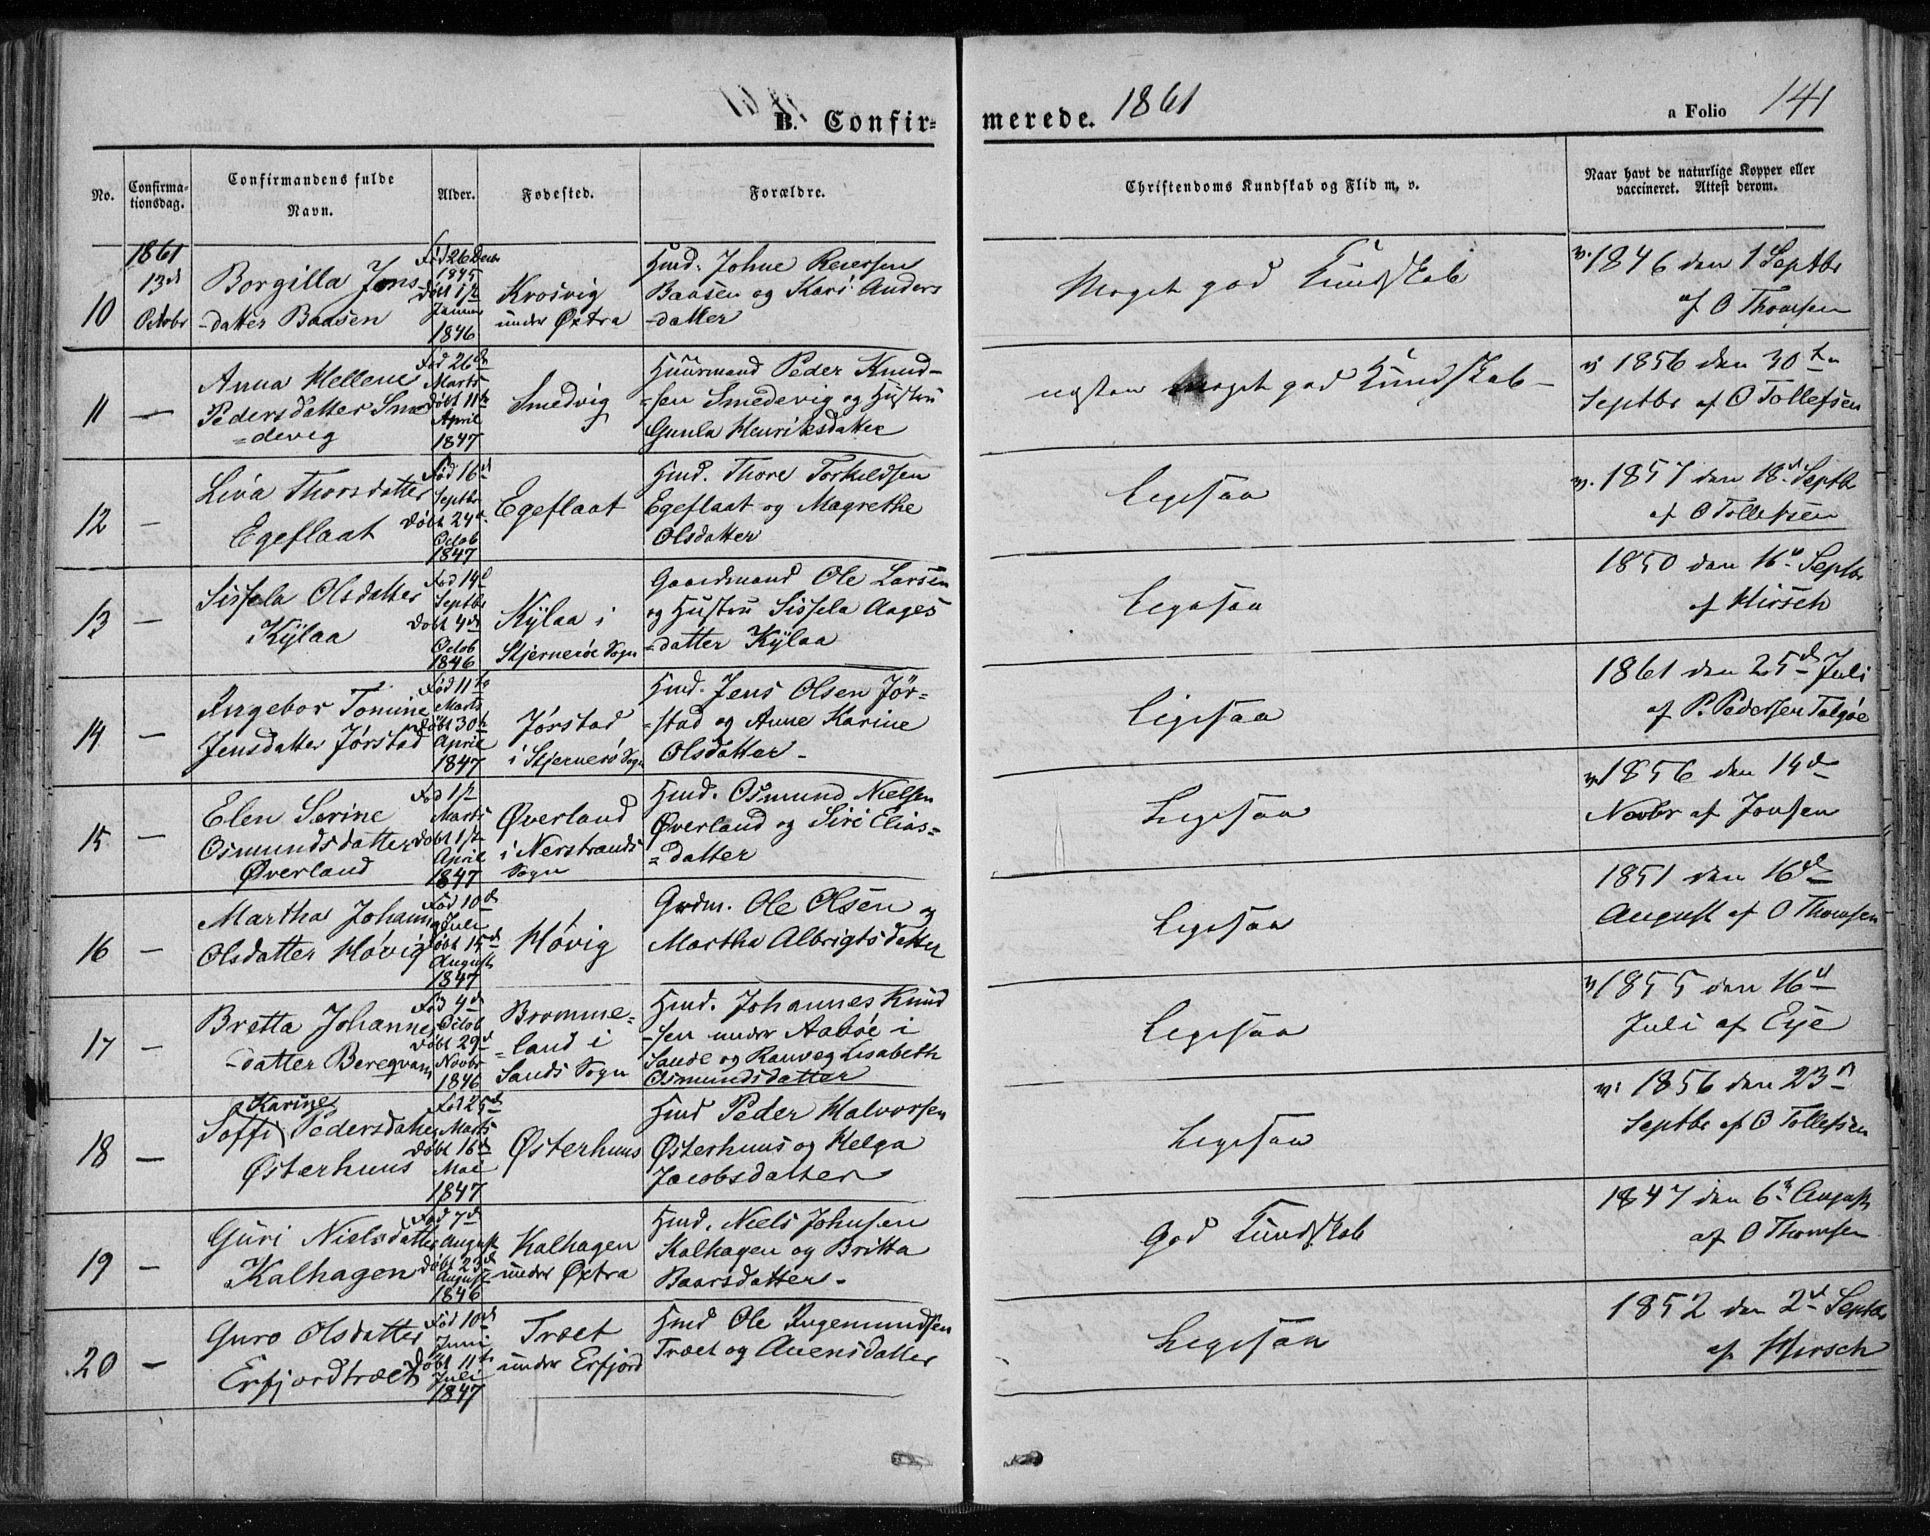 B. Confir-
merede. 1861
a Folio 141
No.
Confirma-
tionsdag.
Confirmandens fulde
Navn.
Alder.
Fødested.
Forældre.
Christendoms Kundskab og Flid m. v.
Naar havt de naturlige Kopper eller
vaccineret. Attest derom.
10
1861
13d
Octobr
Borgilla Jons
-datter Baasen
Fød 26 Decbr
1845
Døbt 1ste
Januar
1846
Krosvig
under Øxtra
Hmd. Johne Reiersen
Baasen og Kari Anders
-datter
Meget god Kundskab
v. 1846 den 1 Septbr
af O Thomsen
11 —
Anna Hellene
Pedersdatter Sme
=devig
Fød 26de
Marts
Døbt 11te
April
1847
Smedvig
Huusmand Peder Knud-
-sen Smedevig og Hustru
Gunla Henriksdatter
næsten meget god Kundskab -
v 1856 den 30te
Septbr af O Tollefsen
12 —
Liva Thorsdatter
Egeflaat
Fød 16d
Septbr
Døbt 24d
Octob
1847
Egeflaat
Hmd. Thore Torkildsen
Egeflaat og Magrethe
Olsdatter
Ligesaa
v. 1857 den 18d Septb
af O Tollefsen
13 —
Sissela Olsdatter
Kÿlaa
Fød 14d
Septbr
Døbt 4de
Octob
1846
Kÿlaa i
Stjernerøe Sogn
Gaardmand Ole Larsen
og Hustru Sissela Aages
=datter Kÿlaa
Ligesaa
1850 den 16d Septbr
af Hirsch
14 —
Ingebor Tomine
Jensdatter Jørstad
Fød 11te
Marts
Døbt 30te
April
1847
Jørstad
i Stjernerø Sogn
Hmd. Jens Olsen Jør-
-stad og Anne Karine
Olsdatter -
Ligesaa
1861 den 25de Juli
af P. Pedersen Talgøe
15 —
Elen Serine
Osmundsdatter
Øverland
Fød 1ste
Marts
Døbt 1ste
April
1847
Øverland
i Nerstrands
Sogn
Hmd. Osmund Nielsen
Øverland og Siri Elias=
=datter
Ligesaa
v 1856 den 14de
Novbr af Jonsen
16 —
Martha Johanna
Olsdatter Høvig
Fød 10de
Juli
Døbt 15de
August
1847
Høvig
Grdm. Ole Olsen og
Martha Albrigtsdatter
Ligesaa
1851 den 16de
August af O Thomsen
17 —
Bretta Johannes
-datter Bereqvam
Fød 4de
Octob
Døbt 29de
Novbr
1846
Bromme-
=land i
Sands Sogn
Hmd. Johannes Knud
-sen under Aabøe i
Sande og Ranveg Lisabeth
Osmundsdatter
Ligesaa
v 1855 den 16d
Juli af Eÿe
18 —
Karine
Soffi Pedersdatter
Østerhuus
Fød 25de
Marts
Døbt 16de
Mai
1847
Østerhuus
Hmd Peder Halvorsen
Østerhuus og Helga
Jacobsdatter
Ligesaa
v: 1856 den 23d
Septbr af O Tollefsen
19 —
Guri Nielsdatter
Kalhagen
Fød 7de
August
Døbt 23de
August
1846
Kalhagen
under Øxtra
Hmd. Niels Johnsen
Kalhagen og Britta
Baarsdatter -
God Kundskab
1847 den 6te August
af O Thomsen
20 —
Guro Olsdatter
Erfjordtræet
Fød 10de
Juni
Døbt 11te
Juli
1847
Træet
under Erfjord
Hmd Ole Ingemundsen
Træet og Auensdatter
Ligesaa
1852 den 2d Septbr
af Hirsch